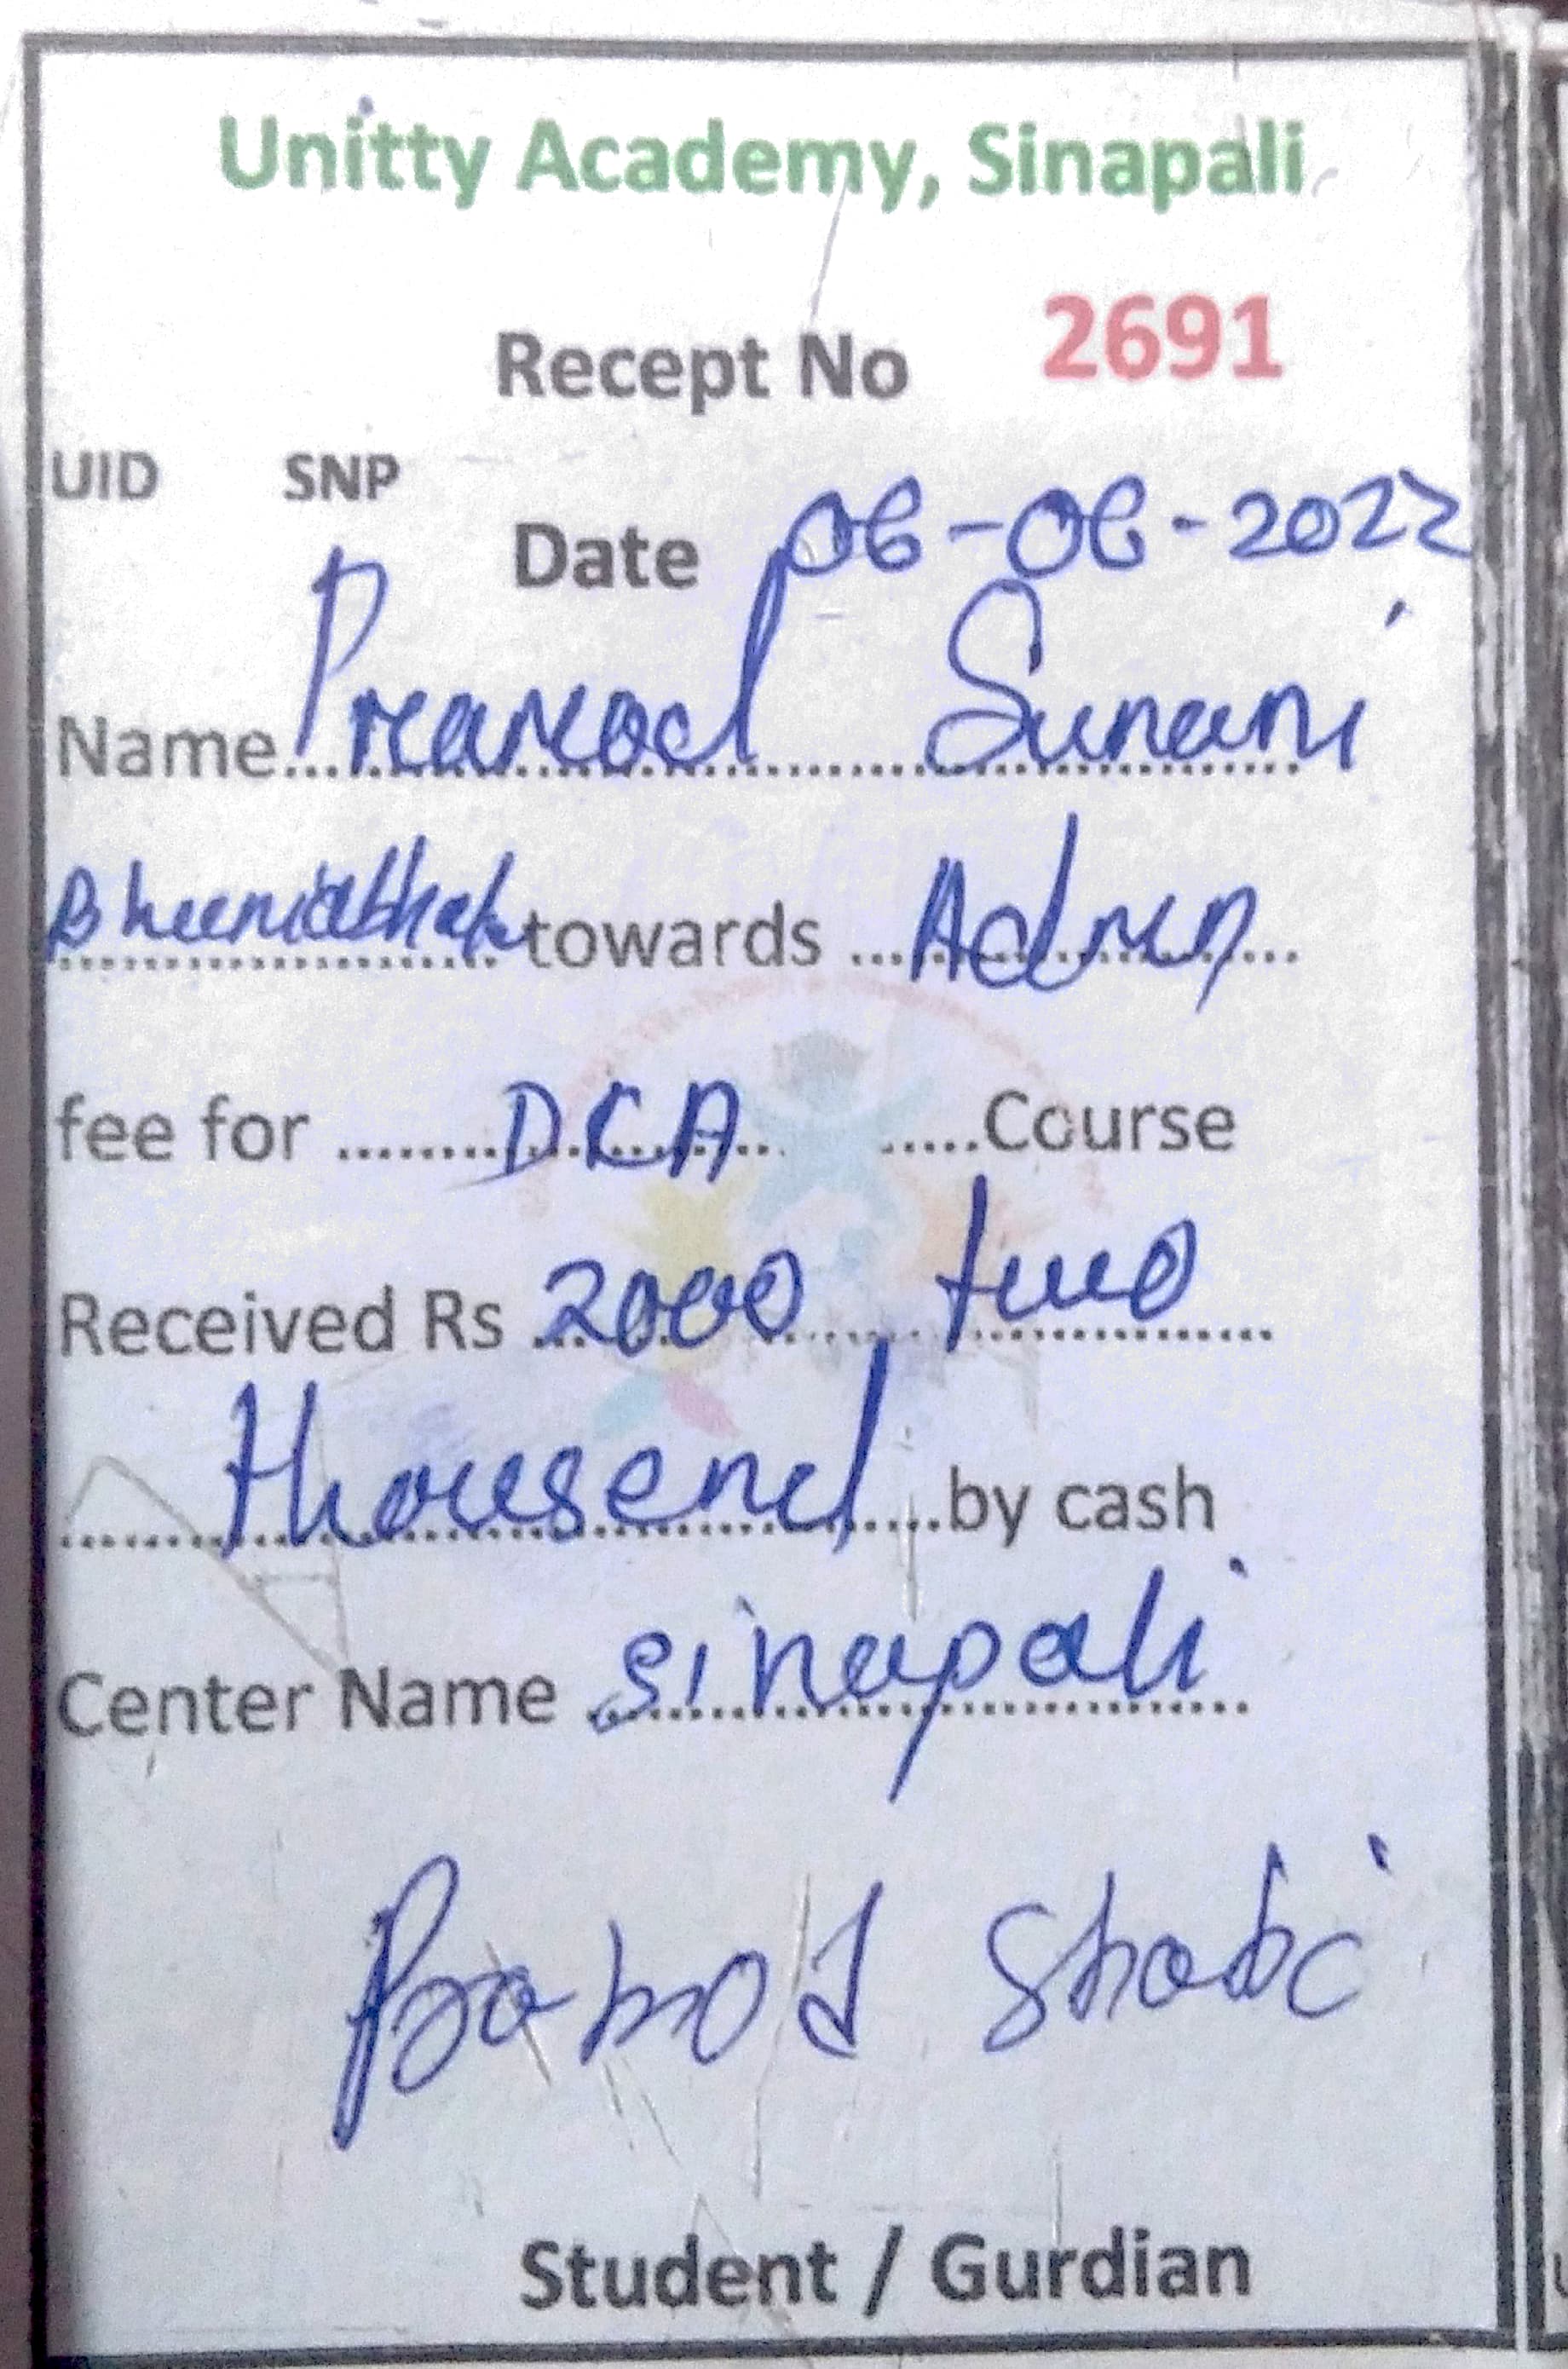 Unitty Academy, Sinapali
Recept No 2691
UID SNP
Date 06-06-2022
Name Pramod Sunani
towards Admn
fee for DCA Course
Received Rs 2000 two
thousend by cash
Center Name sinapali
Student / Gurdian